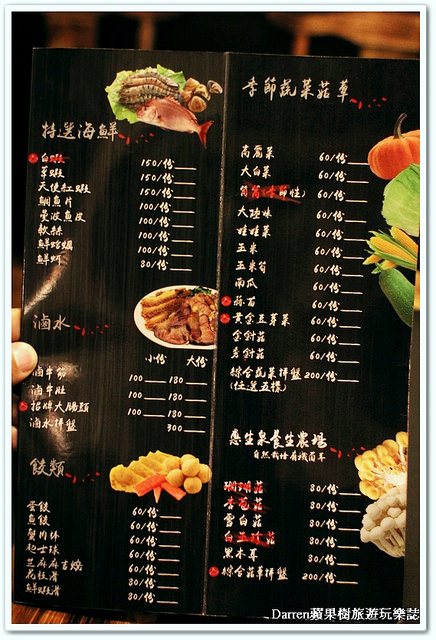 特選海鮮
白蝦 150/份
草蝦 150/份
天使紅蝦 150/份
鯛魚片 100/份
曼波魚皮 100/份
軟絲 100/份
鮮蛤蜊 100/份
鮮蚵 80/份
滷水
小份 大份
滷牛筋 100 180
滷牛肚 100 180
招牌大腸頭 100 180
滷水拼盤 300
餃類
蛋餃 60/份
魚餃 60/份
蟹肉棒 60/份
起士球 60/份
芝麻麻吉燒 60/份
花枝滑 60/份
鮮蝦滑 60/份
季節蔬菜菇草
高麗菜 60/份
大白菜 60/份
筊筍(季節性) 60/份
大陸妹 60/份
娃娃菜 60/份
玉米 60/份
玉米筍 60/份
南瓜 60/份
蒜苗 60/份
黃金豆芽菜 60/份
金針菇 60/份
秀針菇 60/份
綜合蔬菜拼盤 200/份
(任選五樣)
恩生泉養生農場
自然栽培有機菌草
珊瑚菇 80/份
杏苞菇 80/份
雪白菇 80/份
白玉珍菇 80/份
黑木耳 80/份
綜合菇草拼盤 200/份
Darren蘋果樹旅遊玩樂誌